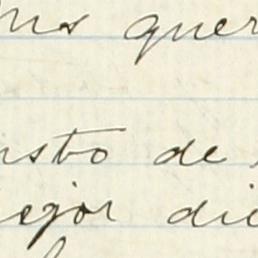 Mis quer
usto de
ejor die